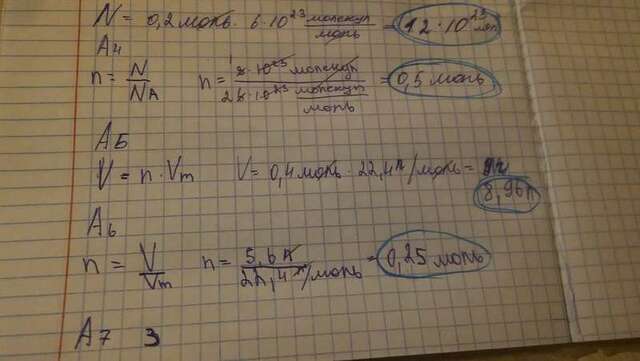 N = 0,2 моль · 6·10²³ молекул/моль = 12·10²³ мол
A4
n = N/NA n = 3·10²³ молекул / 26·10²³ молекул/моль = 0,5 моль
A5
V = n·Vm V = 0,4 моль · 22,4 л/моль = 8,96 л
A6
n = V/Vm n = 5,6 л / 22,4 л/моль = 0,25 моль
A7 3